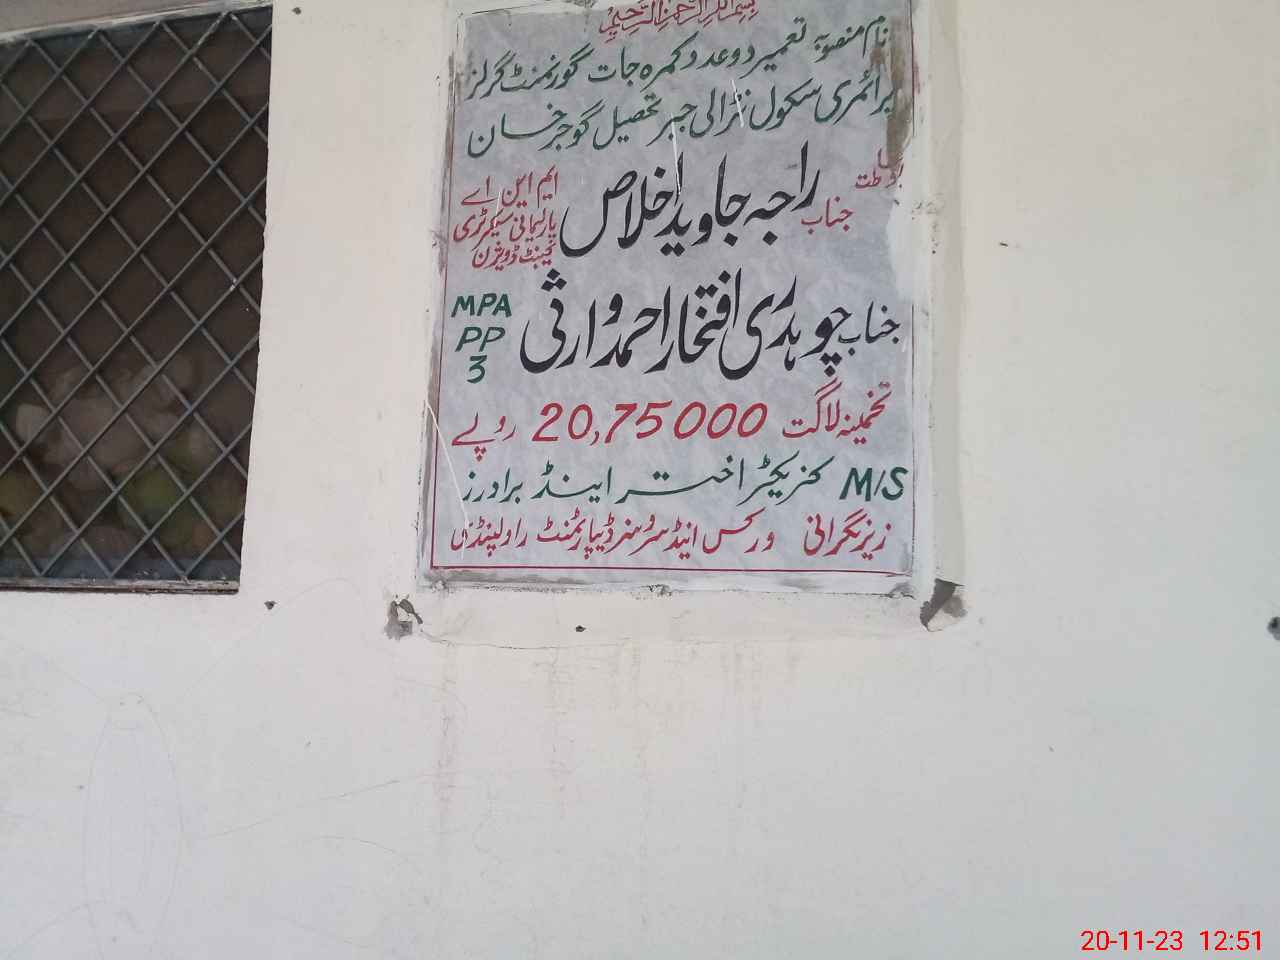 بسم اللہ الرحمن الرحیم
نام منصوبہ تعمیر دو عدد کمرہ جات گورنمنٹ گرلز
پرائمری سکول نڑالی جبر تحصیل گوجر خان
جناب راجہ جاوید اخلاص ایم این اے
پارلیمانی سیکرٹری
کیبنٹ ڈویژن
جناب چوہدری افتخار احمد وارثی MPA
PP
3
تخمینہ لاگت 20,75000 روپے
M/S کنریکٹر اختر اینڈ برادرز
زیر نگرانی ورکس اینڈ سروسز ڈیپارٹمنٹ راولپنڈی
20-11-23 12:51